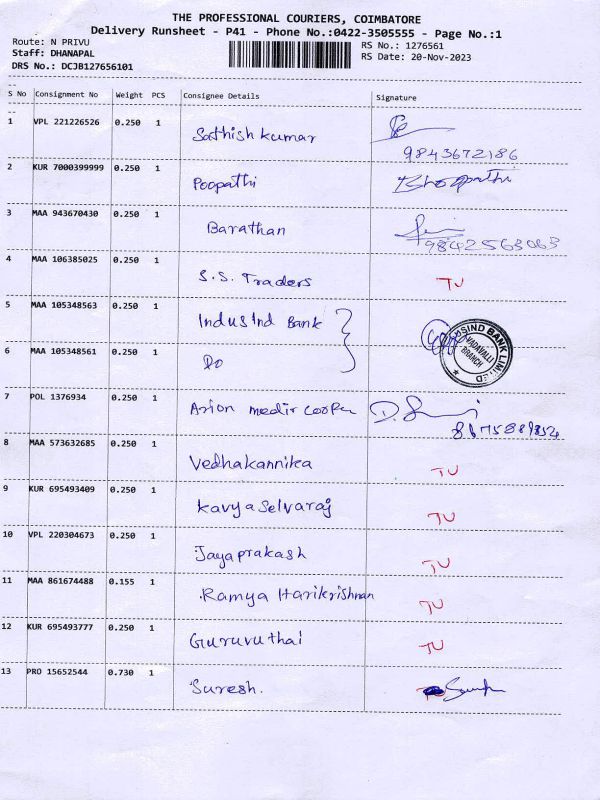 THE PROFESSIONAL COURIERS, COIMBATORE
Delivery Runsheet - P41 - Phone No.:0422-3505555 - Page No.:1
Route: N PRIVU
Staff: DHANAPAL
DRS No.: DCJB127656101
RS No.: 1276561
RS Date: 20-Nov-2023
S No Consignment No Weight PCS Consignee Details Signature
1 VPL 221226526 0.250 1 Sathish kumar
9843672186
2 KUR 7000399999 0.250 1 Poopathi Bhoopathi
3 MAA 943670430 0.250 1 Barathan
9842563063
4 MAA 106385025 0.250 1 S.S. Traders TU
5 MAA 105348563 0.250 1 IndusInd Bank
6 MAA 105348561 0.250 1 Do
VADAVALLI
BRANCH
7 POL 1376934 0.250 1 Arion
8 MAA 573632685 0.250 1 Vedhakannika TU
9 KUR 695493409 0.250 1 Kavya Selvaraj TU
10 VPL 220304673 0.250 1 Jayaprakash TU
11 MAA 861674488 0.155 1 Ramya Harikrishnan TU
12 KUR 695493777 0.250 1 Guruvuthai TU
13 PRO 15652544 0.730 1 Suresh.